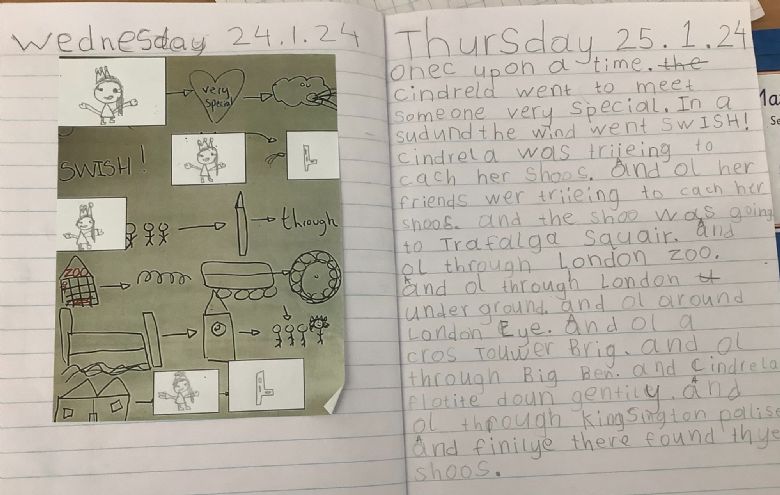 Wednesday 24.1.24
very
special
SWISH!
through
ZOO
Thursday 25.1.24
onec upon a time. the
cindreld went to meet
someone very special. In a
sudund the wind went SWISH!
cindrela was trijeing to
cach her shoos. And ol her
friends wer triieing to cach her
shoos. and the shoo was going
to Trafalga Squair. And
ol through London zoo.
And ol through London
under ground. and ol around
London Eye. And ol a
cros Touwer Brig. and ol
through Big Ben. and Cindrela
flotite doun gentily. And
ol through Kingsington palise
And finilye there found thye
shoos.